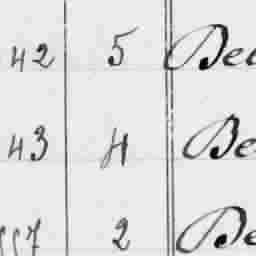 42 5 Be
43 4 Be
557 2 Be